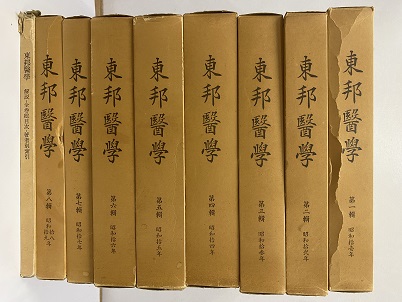 東邦醫學
第一輯
昭和拾壱年
東邦醫學
第二輯
昭和拾弐年
東邦醫學
第三輯
昭和拾参年
東邦醫學
第四輯
昭和拾四年
東邦醫學
第五輯
昭和拾五年
東邦醫學
第六輯
昭和拾六年
東邦醫學
第七輯
昭和拾七年
東邦醫學
第八輯
昭和拾八
拾九年
東邦醫學
解説・全巻総目次・著者別索引